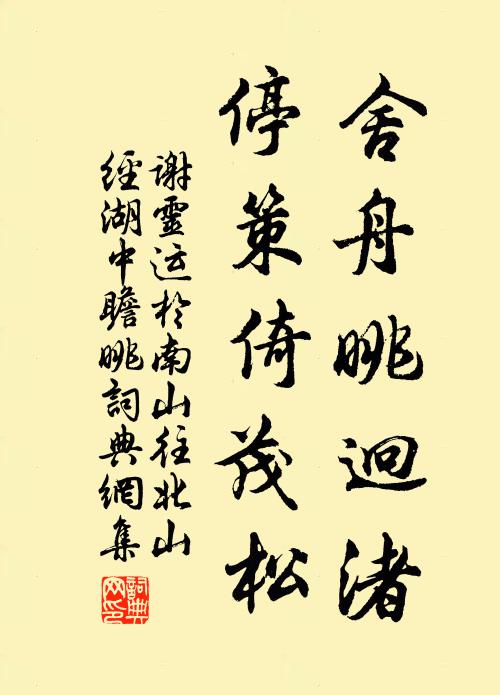 舍舟眺迥渚
停策倚茂松
謝靈运於南山往北山
經湖中瞻眺詞典網集
詞典
网印